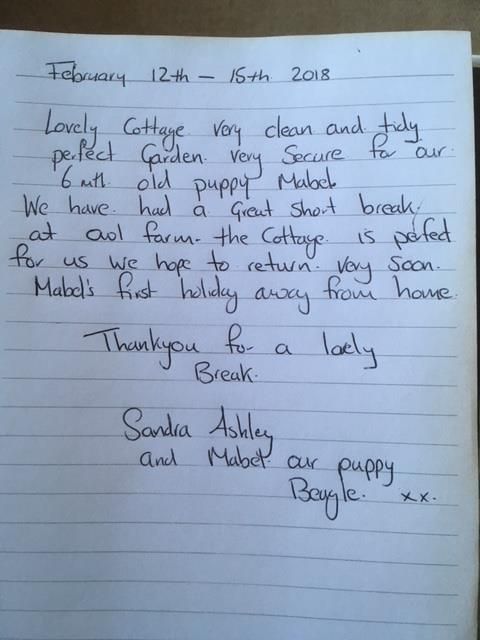 February 12th - 15th 2018
Lovely Cottage very clean and tidy
perfect Garden. very Secure for our
6 mth old puppy Mabel.
We have had a Great Short break
at owl farm. the Cottage is perfect
for us we hope to return very soon.
Mabel's first holiday away from home.
Thankyou for a lovely
Break.
Sandra Ashley
and Mabel our puppy
Beagle. xx.